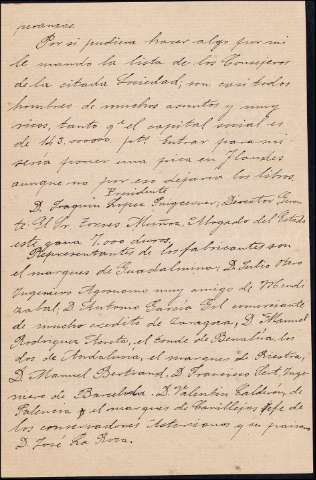 Por si pudiera hacer algo por mi
le mando la lista de los Consejeros
de la citada Sociedad; son casi todos
hombres de muchos asuntos y muy
ricos, tanto qe el capital social es
de 143.000000 pts Entrar para mi
sería poner una pica en Flandes
aunque no por eso dejaría los libros
Presidente
D. Joaquin Lopez Puigcerver; Director
El Sr. Torres Muñoz, Abogado del Estado
este gana 7.000 duros.
Representantes de los fabricantes son
el marques de Guadalmina; D. Julio
Ingeniero Agronomo muy amigo de
D. Antonio Garcia Gil comerciante
de mucho credito de Zaragoza; D. Manuel
Rodriguez el conde de Benalúa los
dos de Andalucia, el marques de Riestra,
D. Manuel Bertrand, D. Francisco Inge
niero de Barcelona. D. Valentin Calderón, de
Palencia y el marques de Canillejas jefe de
los conservadores Asturianos y su paisano
D. José La Rosa.